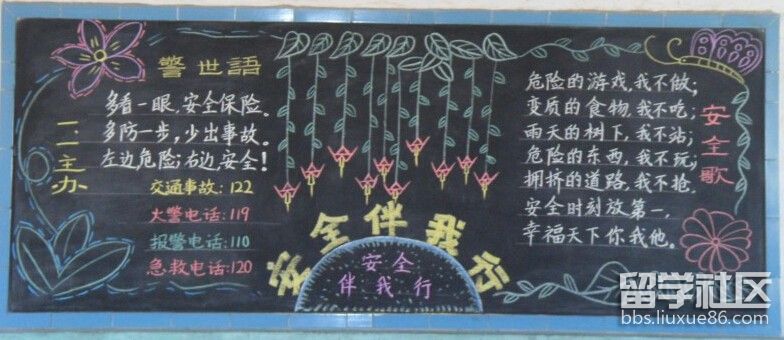 警世語
多看一眼,安全保险。
多防一步,少出事故。
左边危险;右边安全!
交通事故:122
火警电话:119
报警电话:110
急救电话:120
二·一主办
安全伴我行
安全
伴我行
安全歌
危险的游戏,我不做;
变质的食物,我不吃;
雨天的树下,我不站;
危险的东西,我不玩;
拥挤的道路,我不抢。
安全时刻放第一,
幸福天下你我他。
留学社区
bbs.liuxue86.com